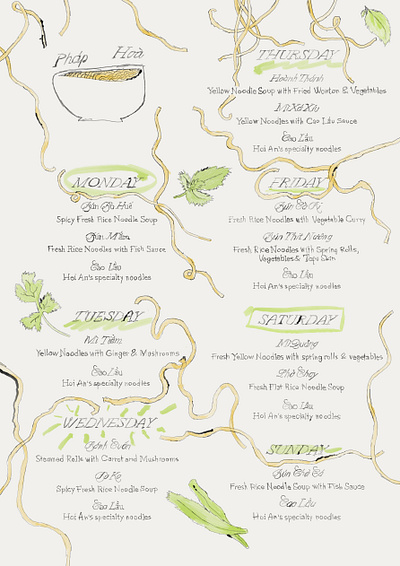 Pháp Hoà
MONDAY
Bún Bò Huế
Spicy Fresh Rice Noodle Soup
Bún Mắm
Fresh Rice Noodles with Fish Sauce
Cao Lầu
Hoi An's specialty noodles
TUESDAY
Mì
Yellow Noodles with Ginger & Mushrooms
Cao Lầu
Hoi An's specialty noodles
WEDNESDAY
Bánh Cuốn
Steamed Rolls with Carrot and Mushrooms
Spicy Fresh Rice Noodle Soup
Cao Lầu
Hoi An's specialty noodles
THURSDAY
Hoành Thánh
Yellow Noodle Soup with Fried Wonton & Vegetables
Mì Xá Xíu
Yellow Noodles with Cao Lầu Sauce
Cao Lầu
Hoi An's specialty noodles
FRIDAY
Bún Cà Ri
Fresh Rice Noodles with Vegetable Curry
Bún Thịt Nướng
Fresh Rice Noodles with Spring Rolls,
Vegetables & Tapi Skin
Cao Lầu
Hoi An's specialty noodles
SATURDAY
Mì Quảng
Fresh Yellow Noodles with spring rolls & vegetables
Phở Chay
Fresh Flat Rice Noodle Soup
Cao Lầu
Hoi An's specialty noodles
SUNDAY
Bún
Fresh Rice Noodle Soup with Fish Sauce
Cao Lầu
Hoi An's specialty noodles